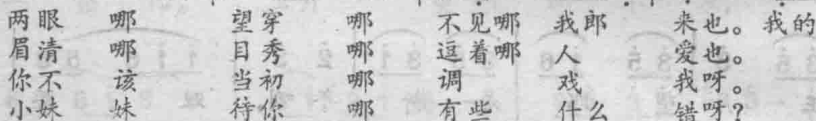 两眼 哪 望穿 哪 不见哪 我郎 来也。我的
眉清 哪 目秀 哪 逗着哪 人 爱也。
你不 该 当初 哪 调 戏 我呀。
小妹 妹 待你 哪 有些 什么 错呀？